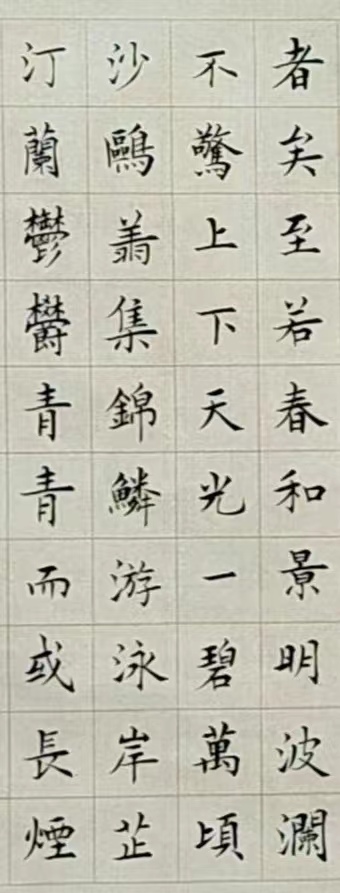 者矣至若春和景明波瀾
不驚上下天光一碧萬頃
沙鷗翔集錦鱗游泳岸芷
汀蘭鬱鬱青青而或長煙